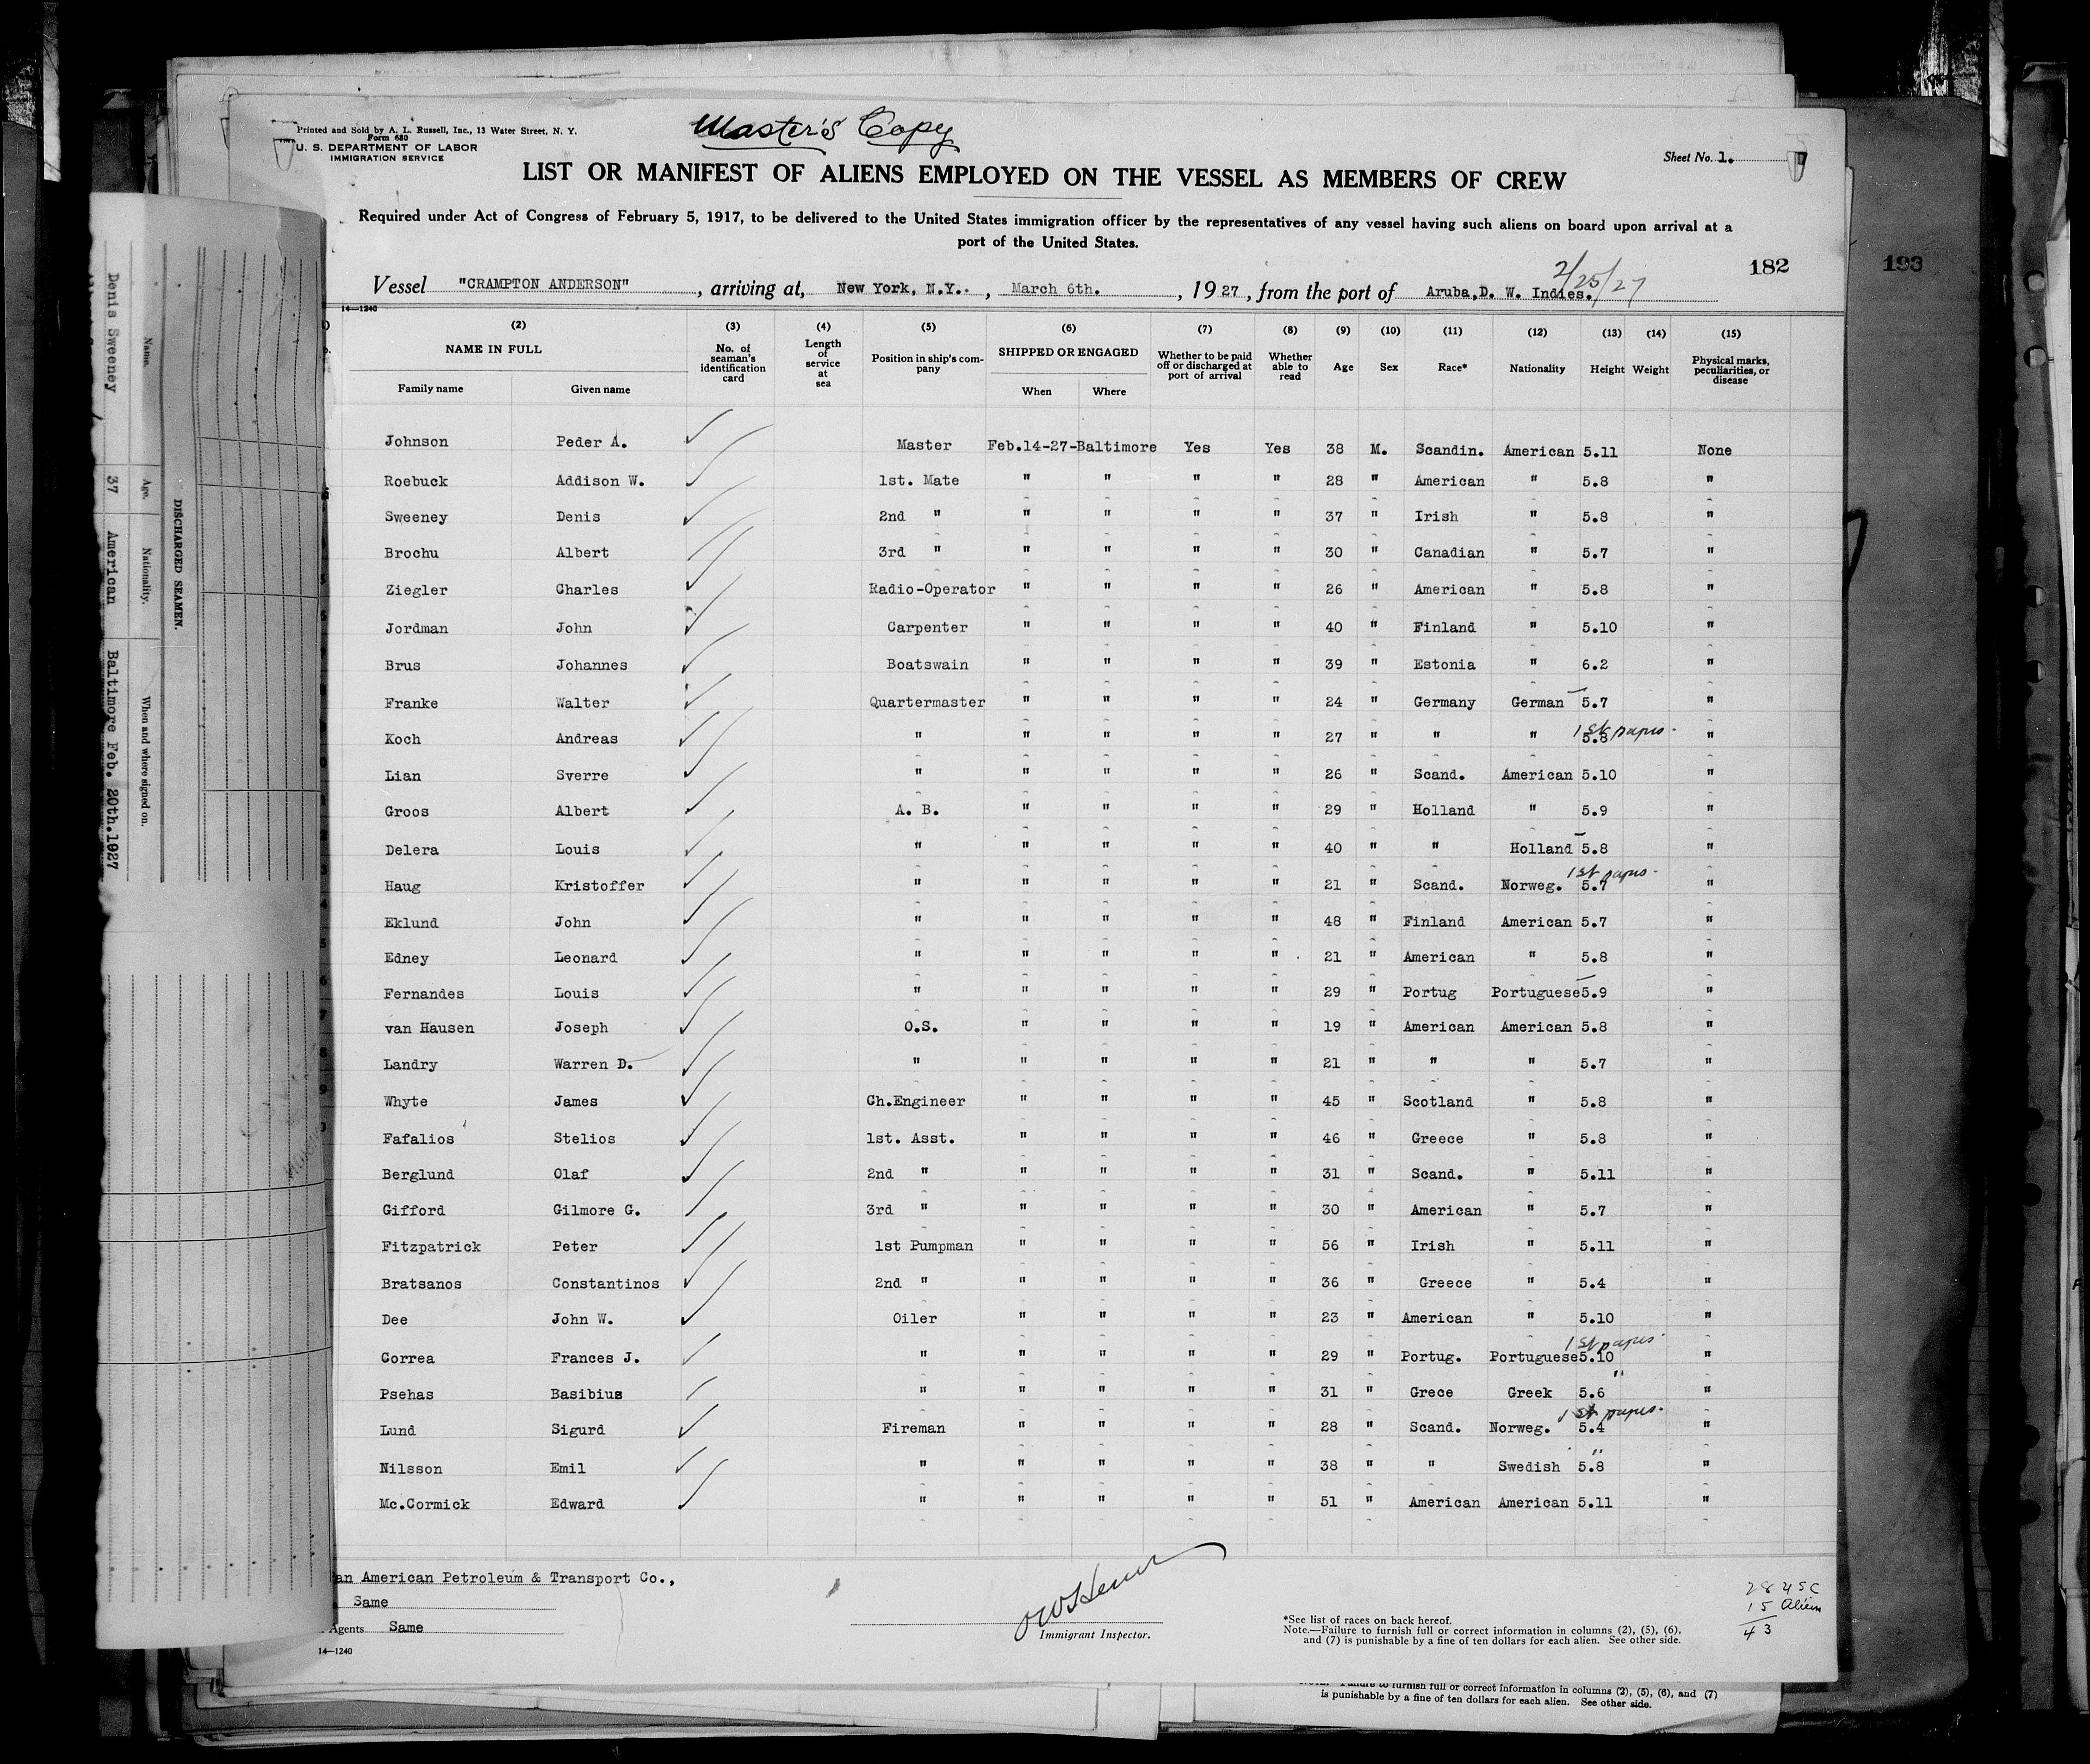 Master's Copy
Printed and Sold by A. L. Russell, Inc., 13 Water Street, N. Y.
Form 680
U. S. DEPARTMENT OF LABOR
IMMIGRATION SERVICE
Sheet No. 1.
LIST OR MANIFEST OF ALIENS EMPLOYED ON THE VESSEL AS MEMBERS OF CREW
Required under Act of Congress of February 5, 1917, to be delivered to the United States immigration officer by the representatives of any vessel having such aliens on board upon arrival at a
port of the United States.
182
193
2/25/27
Vessel "CRAMPTON ANDERSON", arriving at, New York, N.Y., March 6th., 1927, from the port of Aruba, D. W. Indies.
14—1240
(2) (3) (4) (5) (6) (7) (8) (9) (10) (11) (12) (13) (14) (15)
NAME IN FULL No. of seaman's identification card Length of service at sea Position in ship's company SHIPPED OR ENGAGED Whether to be paid off or discharged at port of arrival Whether able to read Age Sex Race* Nationality Height Weight Physical marks, peculiarities, or disease
Family name Given name When Where
Johnson Peder A. Master Feb.14-27-Baltimore Yes Yes 38 M. Scandin. American 5.11 None
Roebuck Addison W. 1st. Mate " " " " 28 " American " 5.8 "
Sweeney Denis 2nd " " " " " 37 " Irish " 5.8 "
Brochu Albert 3rd " " " " " 30 " Canadian " 5.7 "
Ziegler Charles Radio-Operator " " " " 26 " American " 5.8 "
Jordman John Carpenter " " " " 40 " Finland " 5.10 "
Brus Johannes Boatswain " " " " 39 " Estonia " 6.2 "
Franke Walter Quartermaster " " " " 24 " Germany German 5.7 "
Koch Andreas " " " " " 27 " " " 5.8 1st papers "
Lian Sverre " " " " " 26 " Scand. American 5.10 "
Groos Albert A. B. " " " " 29 " Holland " 5.9 "
Delera Louis " " " " " 40 " " Holland 5.8 "
Haug Kristoffer " " " " " 21 " Scand. Norweg. 5.7 1st papers "
Eklund John " " " " " 48 " Finland American 5.7 "
Edney Leonard " " " " " 21 " American " 5.8 "
Fernandes Louis " " " " " 29 " Portug Portuguese 5.9 "
van Hausen Joseph O.S. " " " " 19 " American American 5.8 "
Landry Warren D. " " " " " 21 " " " 5.7 "
Whyte James Ch.Engineer " " " " 45 " Scotland " 5.8 "
Fafalios Stelios 1st. Asst. " " " " 46 " Greece " 5.8 "
Berglund Olaf 2nd " " " " " 31 " Scand. " 5.11 "
Gifford Gilmore G. 3rd " " " " " 30 " American " 5.7 "
Fitzpatrick Peter 1st Pumpman " " " " 56 " Irish " 5.11 "
Bratsanos Constantinos 2nd " " " " " 36 " Greece " 5.4 "
Dee John W. Oiler " " " " 23 " American " 5.10 "
Correa Frances J. " " " " " 29 " Portug. Portuguese 5.10 1st papers "
Psehas Basibius " " " " " 31 " Grece Greek 5.6 " "
Lund Sigurd Fireman " " " " 28 " Scand. Norweg. 5.4 1st papers "
Nilsson Emil " " " " " 38 " " Swedish 5.8 " "
Mc.Cormick Edward " " " " " 51 " American American 5.11 "
an American Petroleum & Transport Co.,
Same
Agents Same
14—1240
Immigrant Inspector.
*See list of races on back hereof.
Note.—Failure to furnish full or correct information in columns (2), (5), (6),
and (7) is punishable by a fine of ten dollars for each alien. See other side.
28 USC
15 Aliens
43
Failure to furnish full or correct information in columns (2), (5), (6), and (7)
is punishable by a fine of ten dollars for each alien. See other side.
DISCHARGED SEAMEN.
Name. Age. Nationality. When and where signed on.
Denis Sweeney 37 American Baltimore Feb. 20th.1927